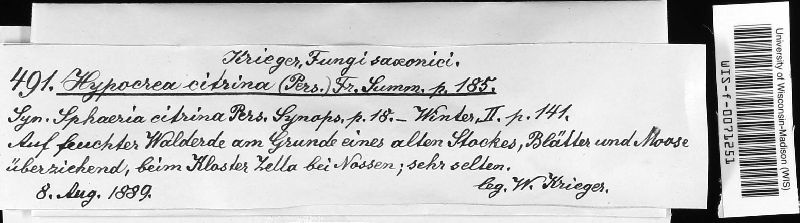 Krieger, Fungi saxonici.
491. Hypocrea citrina (Pers.) Fr. Summ. p. 185.
Syn. Sphaeria citrina Pers. Synops. p. 18. – Winter, II. p. 141.
Auf feuchter Walderde am Grunde eines alten Stockes, Blätter und Moose
überziehend, beim Kloster Zella bei Nossen; sehr selten.
8. Aug. 1889.
leg. W. Krieger.
WIS-f-0071251
University of Wisconsin-Madison (WIS)